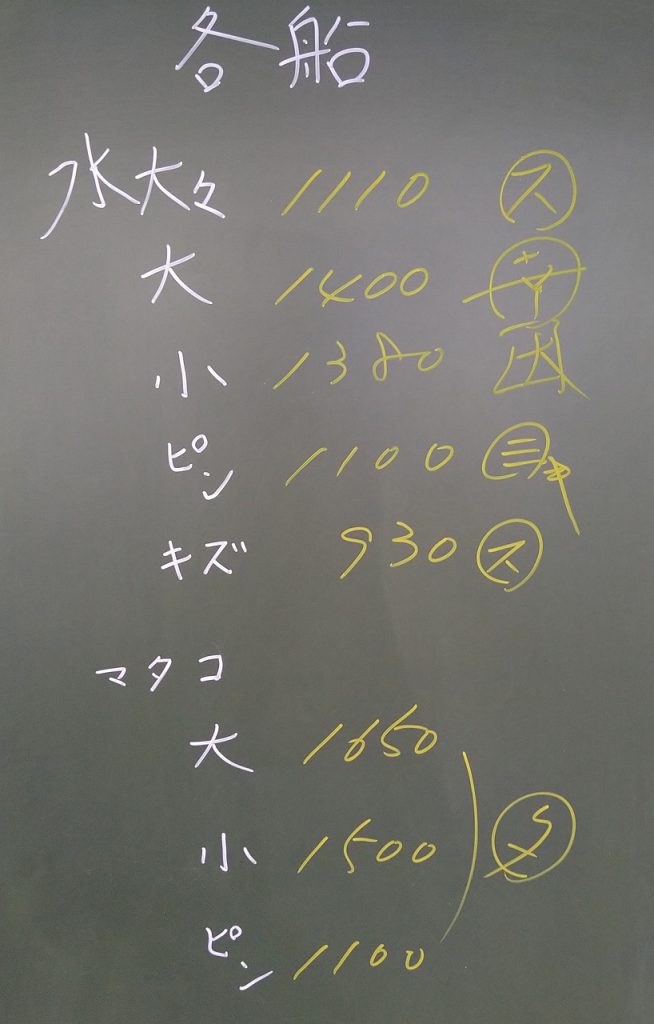 各船
水大々 1110 ス
大 1400
小 1380
ピン 1100
キズ 930 ス
マタコ
大 1650
小 1500
ピン 1100